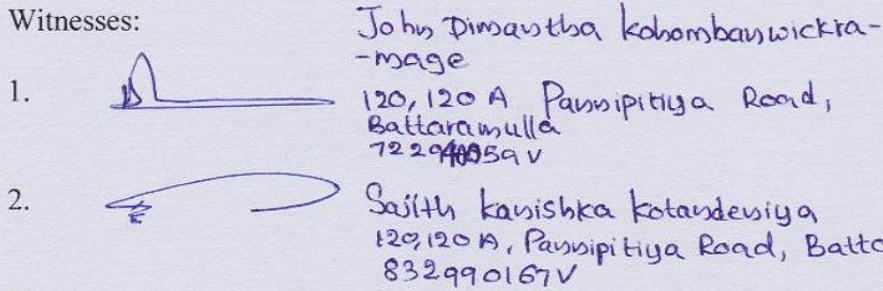 Witnesses:
John Dimantha kohombanwickra-
-mage
1.
120, 120 A Pannipitiya Road,
Battaramulla
2.
Sajith kanishka kotandeniya
120, 120 A, Pannipitiya Road, Batta
832990167V